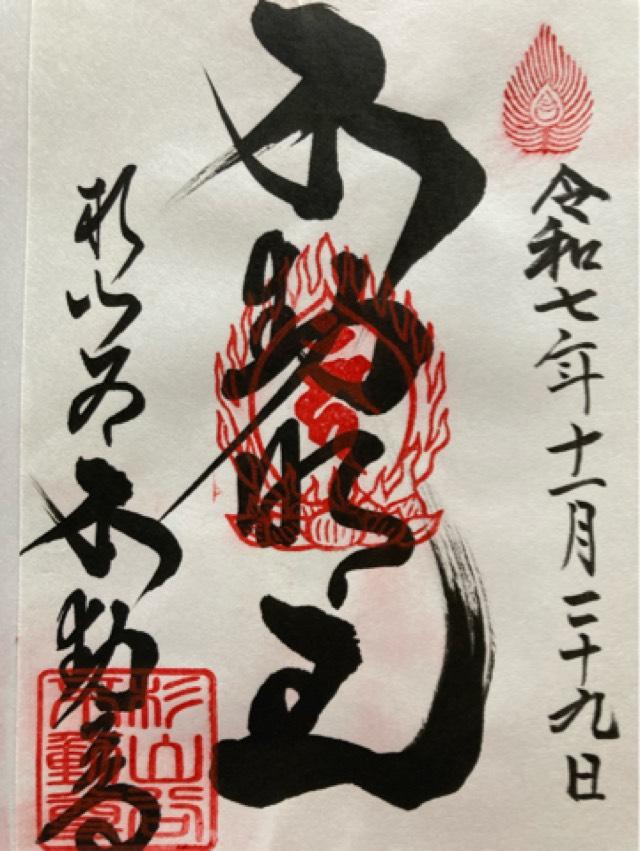 令和七年十一月二十九日
不動明王
杉山谷不動尊
杉山谷
不動尊